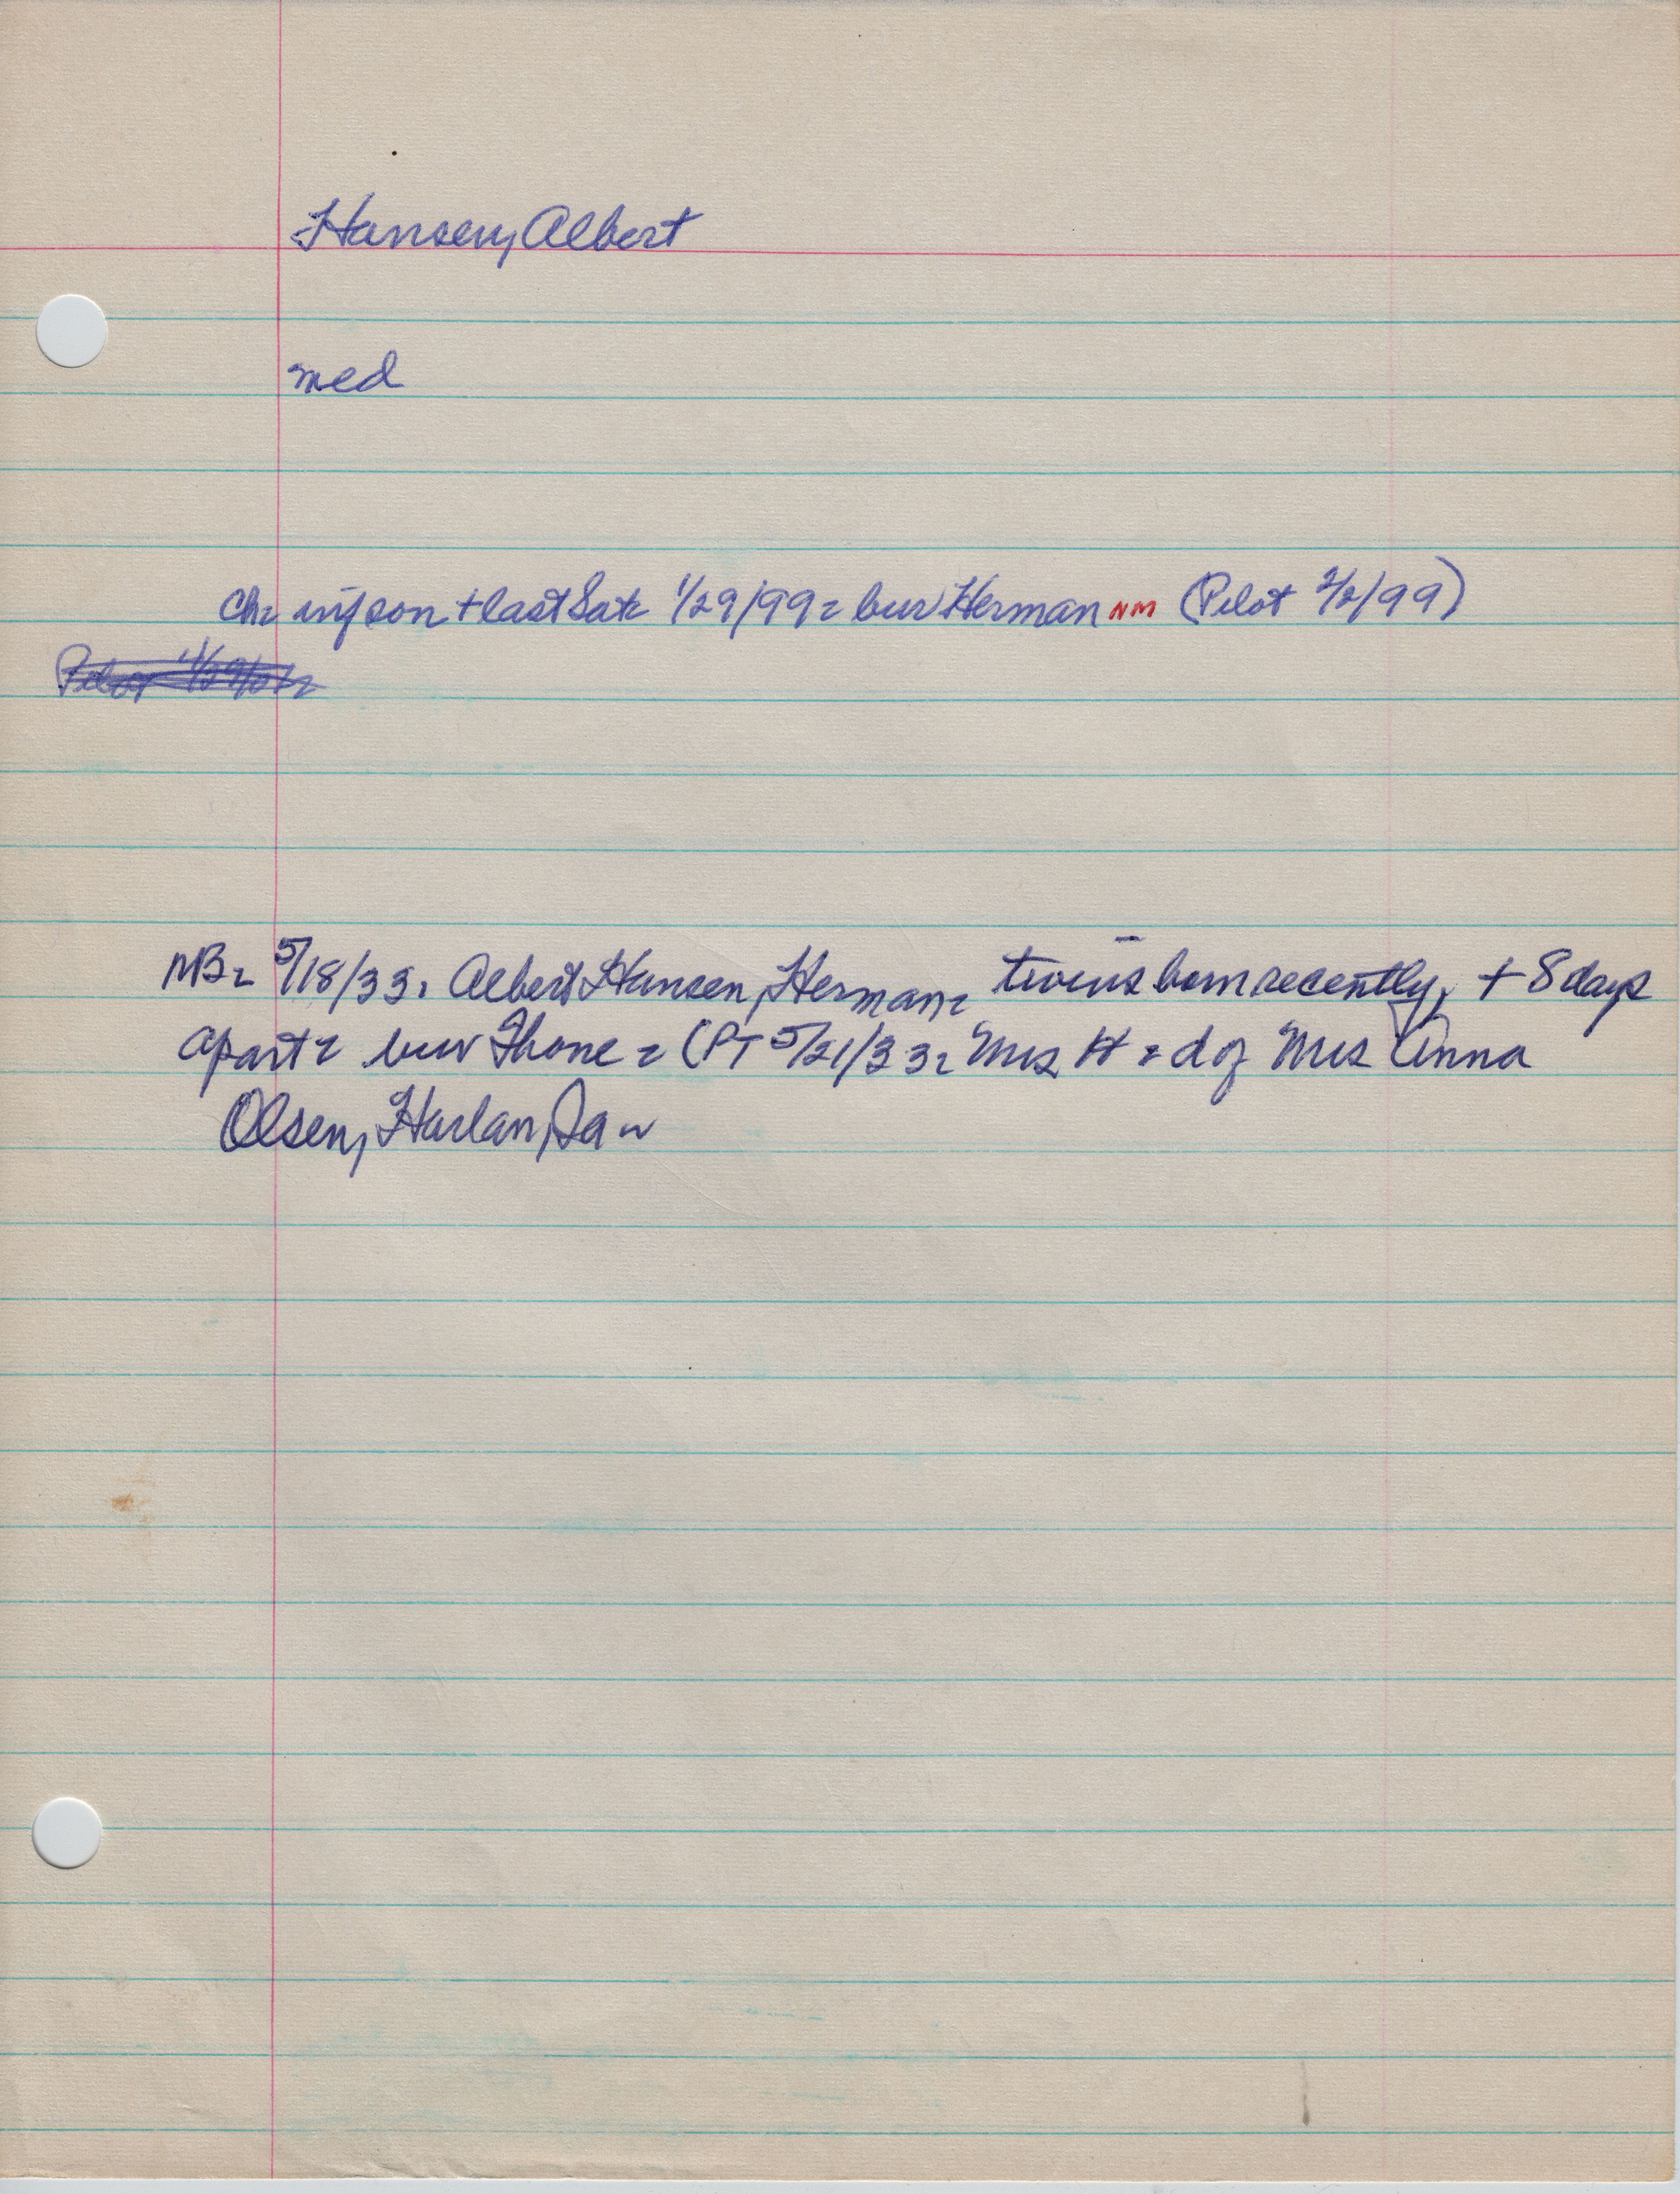 Hansen, Albert
med
Ch= inf son + last Sat= 1/29/99= bur Herman NM (Pilot 2/2/99)
NB= 5/18/33= Albert Hansen, Herman= twins born recently, + 8 days
apart= bur Thone= (PT 5/21/33= Mrs H= d of Mrs Anna
Olsen, Harlan, Ia